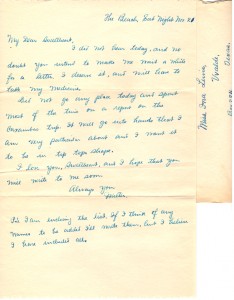 The Beach, Wed Night Nov 21
My Dear Sweetheart,
I did not hear today, and no
doubt you intend to make me wait a while
for a letter. I deserve it, and will have to
take my medicine.
Did not go any place today and spent
most of the time on a report on the
trip. It will go into hands that I
am very particular about and I want it
to be in tip top shape.
I love you, Sweetheart, and I hope that you
will write to me soon.
Always your
P.S. I am enclosing the list. If I think of any
names to be added I'll write them, but I believe
I have included all.
Miss
Uvalde,
Texas.